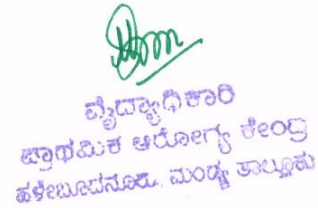 ವೈದ್ಯಾಧಿಕಾರಿ
ಪ್ರಾಥಮಿಕ ಆರೋಗ್ಯ ಕೇಂದ್ರ
ಹಳೇಬೂದನೂರು, ಮಂಡ್ಯ ತಾಲ್ಲೂಕು